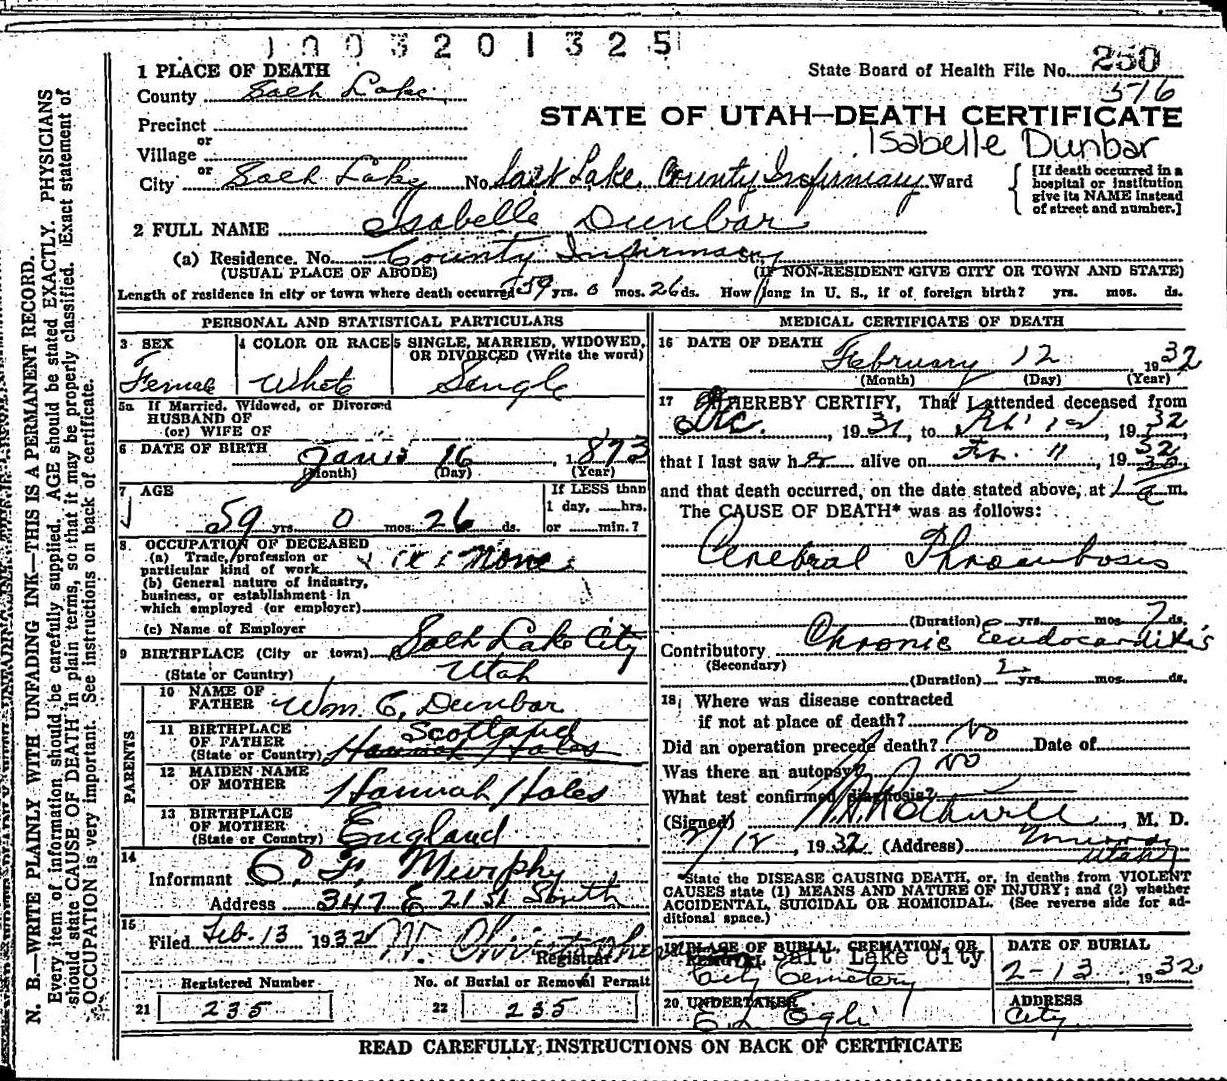 1003201325
1 PLACE OF DEATH
State Board of Health File No. 250
County Salt Lake
516
Precinct
STATE OF UTAH—DEATH CERTIFICATE
or
Village
Isabelle Dunbar
or
City Salt Lake No. Salt Lake County Infirmary Ward
[If death occurred in a hospital or institution give its NAME instead of street and number.]
2 FULL NAME Isabelle Dunbar
(a) Residence. No. County Infirmary
(USUAL PLACE OF ABODE) (IF NON-RESIDENT GIVE CITY OR TOWN AND STATE)
Length of residence in city or town where death occurred 59 yrs. 0 mos. 26 ds. How long in U. S., if of foreign birth? yrs. mos. ds.
PERSONAL AND STATISTICAL PARTICULARS
3 SEX
Female
4 COLOR OR RACE
White
5 SINGLE, MARRIED, WIDOWED,
OR DIVORCED (Write the word)
Single
5a If Married, Widowed, or Divorced
HUSBAND OF
(or) WIFE OF
6 DATE OF BIRTH 16, 1873
(Month) (Day) (Year)
7 AGE
59 yrs. 0 mos. 26 ds.
If LESS than
1 day, hrs.
or min.?
8. OCCUPATION OF DECEASED
(a) Trade, profession or
particular kind of work None
(b) General nature of industry,
business, or establishment in
which employed (or employer)
(c) Name of Employer
9 BIRTHPLACE (City or town) Salt Lake City
(State or Country) Utah
PARENTS
10 NAME OF
FATHER Wm. C. Dunbar
11 BIRTHPLACE
OF FATHER Scotland
(State or Country) Hannah Hales
12 MAIDEN NAME
OF MOTHER Hannah Hales
13 BIRTHPLACE
OF MOTHER
(State or Country) England
14
Informant C. F. Murphy
Address 347 E 21st South
15
Filed Feb. 13 1932 W. Christopherson
Registrar
Registered Number
21 235
No. of Burial or Removal Permit
22 235
MEDICAL CERTIFICATE OF DEATH
16 DATE OF DEATH
February 12 1932
(Month) (Day) (Year)
17 I HEREBY CERTIFY, That I attended deceased from
Dec., 1931, to Feb 12, 1932
that I last saw her alive on Feb. 11, 1932
and that death occurred, on the date stated above, at 1 a m.
The CAUSE OF DEATH* was as follows:
Cerebral Thrombosis
(Duration) yrs. mos. 7 ds.
Contributory Chronic Endocarditis
(Secondary)
(Duration) 2 yrs. mos. ds.
18 Where was disease contracted
if not at place of death?
Did an operation precede death? No Date of
Was there an autopsy? No
What test confirmed diagnosis?
(Signed) , M. D.
2/12, 1932 (Address) Murray
Utah
State the DISEASE CAUSING DEATH, or, in deaths from VIOLENT
CAUSES state (1) MEANS AND NATURE OF INJURY; and (2) whether
ACCIDENTAL, SUICIDAL OR HOMICIDAL. (See reverse side for ad-
ditional space.)
19 PLACE OF BURIAL, CREMATION, OR
REMOVAL Salt Lake City
City Cemetery
DATE OF BURIAL
2-13, 1932
20 UNDERTAKER
E. L. Egli
ADDRESS
City
READ CAREFULLY; INSTRUCTIONS ON BACK OF CERTIFICATE
N. B.—WRITE PLAINLY WITH UNFADING INK—THIS IS A PERMANENT RECORD.
Every item of information should be carefully supplied. AGE should be stated EXACTLY. PHYSICIANS
should state CAUSE OF DEATH in plain terms, so that it may be properly classified. Exact statement of
OCCUPATION is very important. See instructions on back of certificate.